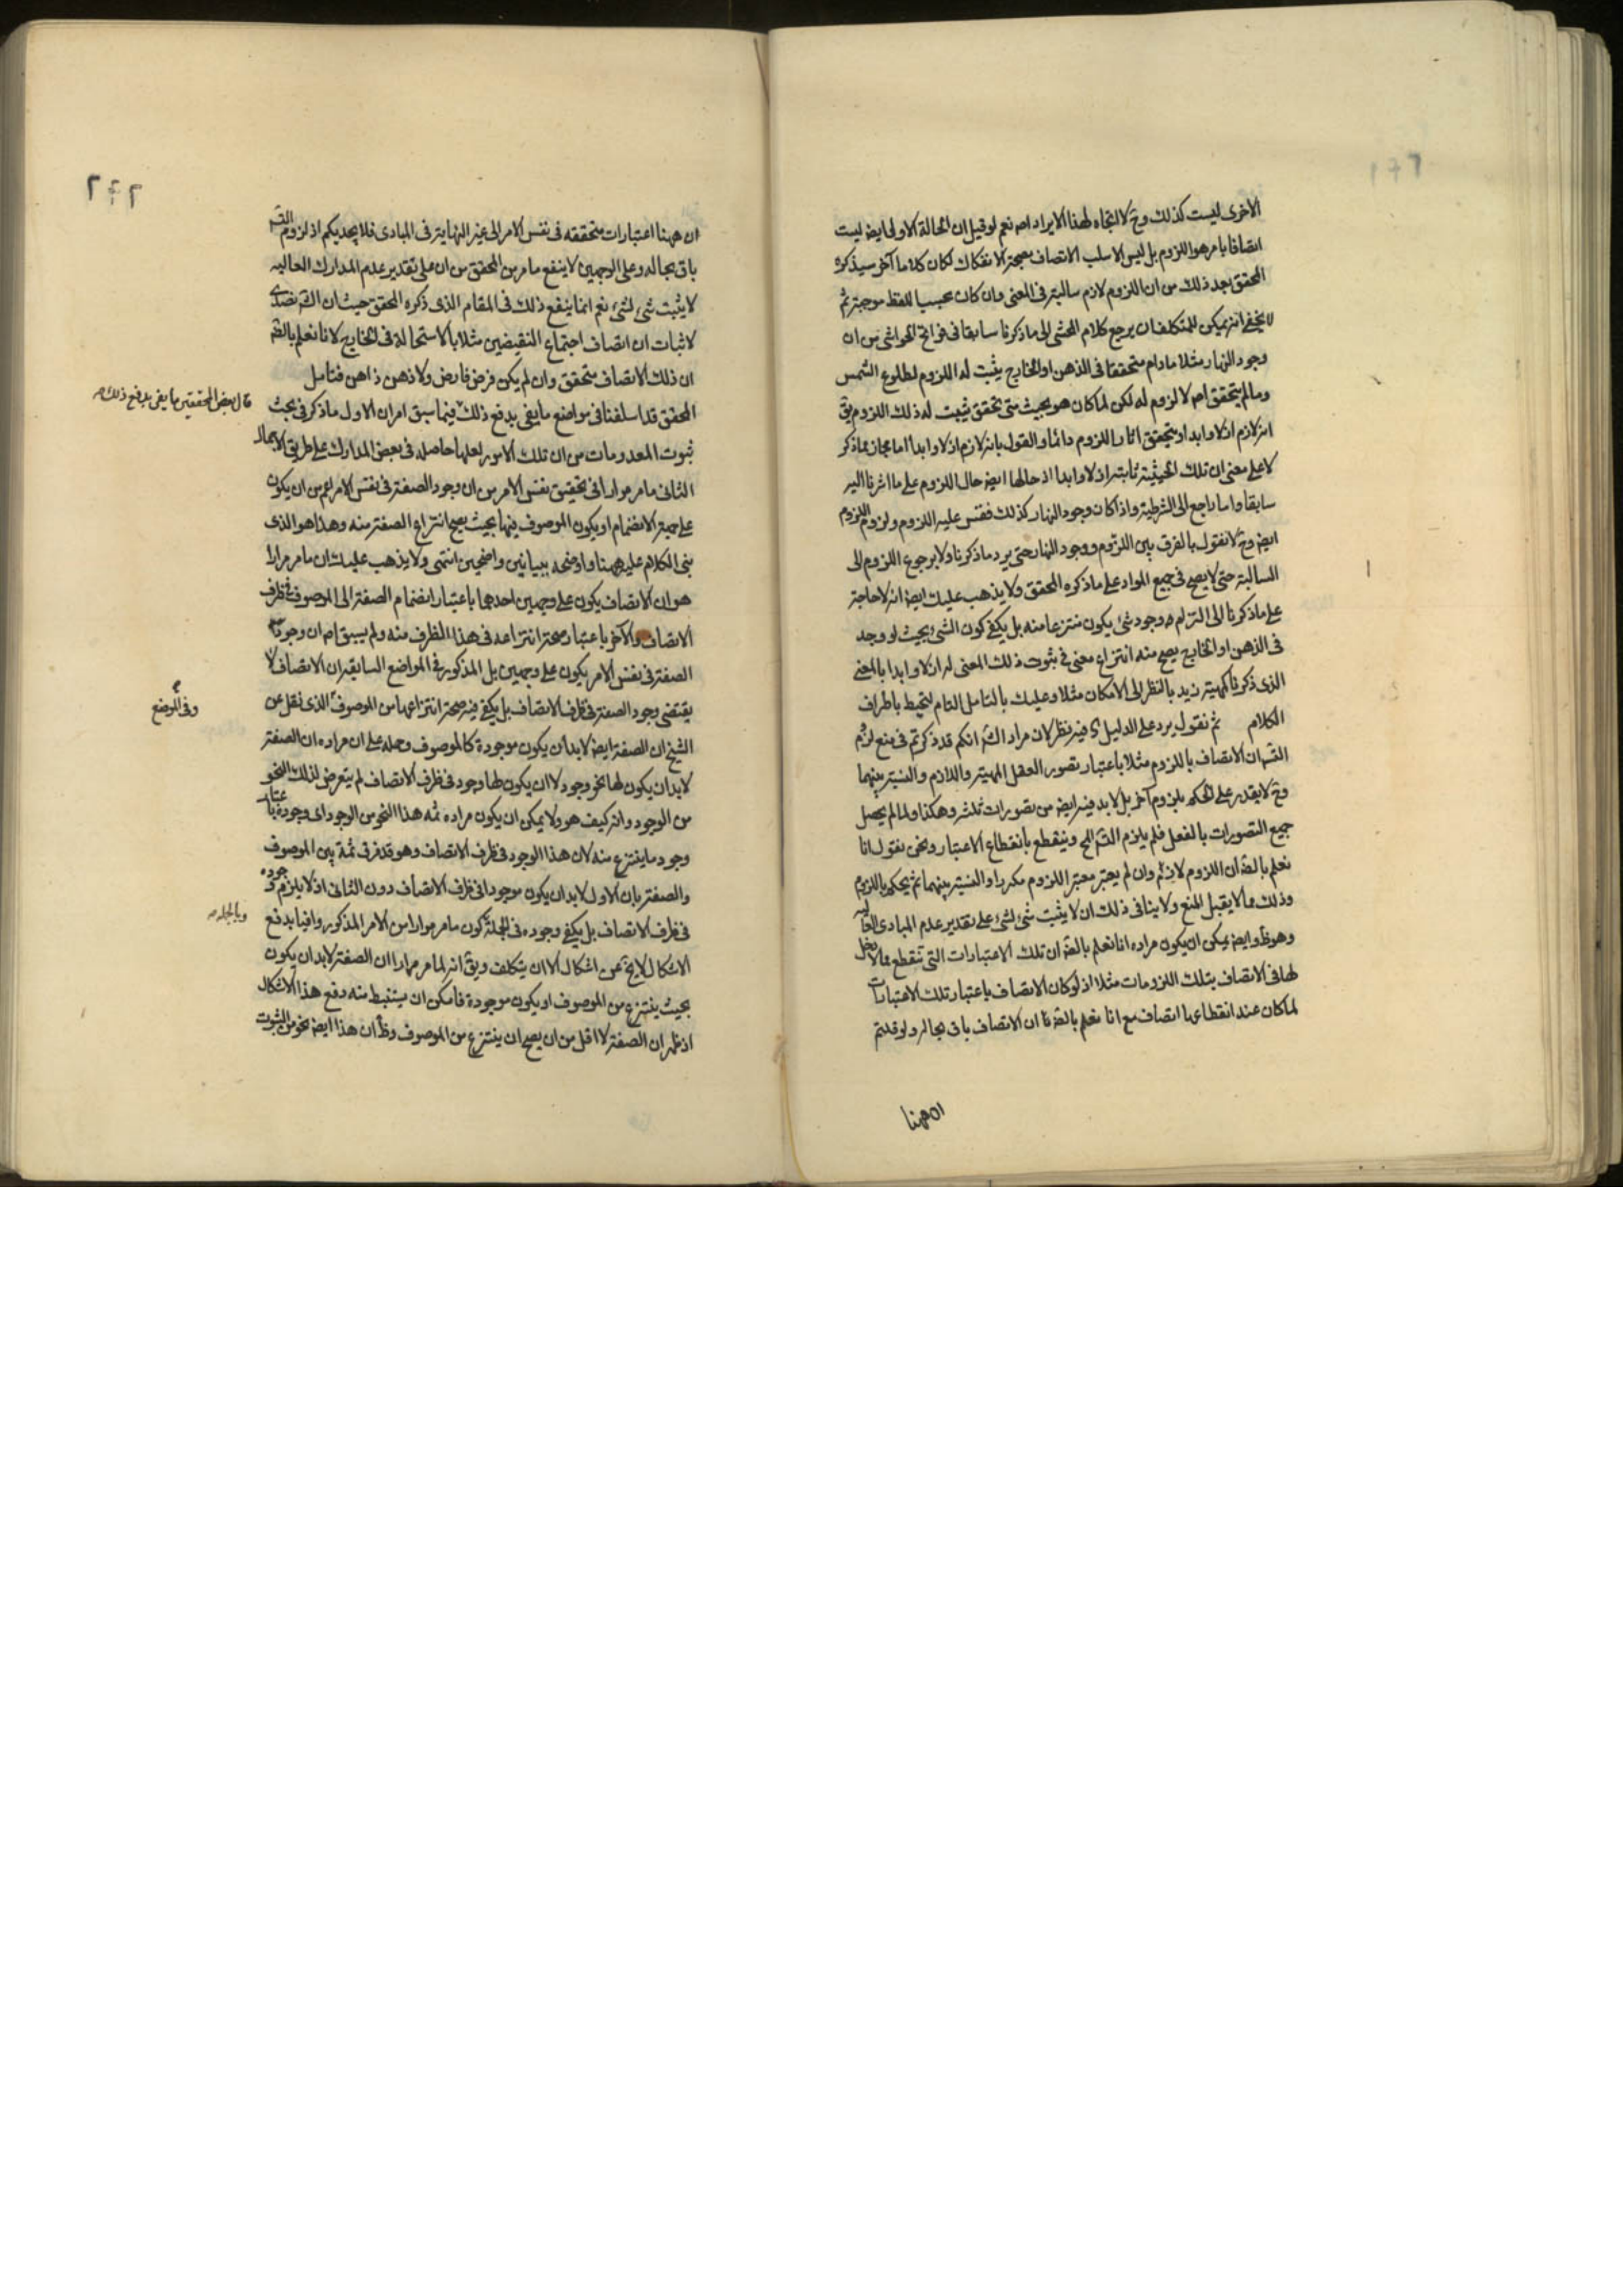 الاخرى ليست كذلك وح لا اتجاه لهذا الايراد اصه نعم لو قيل ان الحالة الاولى ايضه ليست
اتصافا بامر هو اللزوم بل ليس الا سلب الاتصاف بصحة الانفكاك لكان كلاما آخر سيذكره
المحقق بعد ذلك من ان اللزوم لازم سالبة في المعنى وان كان بحسب اللفظ موجبة ثم
لا يخفى انه يمكن للمتكلف ان يرجع كلام المحشى الى ما ذكرنا سابقا في فواتح الحواشى من ان
وجود النهار مثلا مادام متحققا في الذهن او الخارج يثبت له اللزوم لطلوع الشمس
وما لم يتحقق اصه لا لزوم له لكن لما كان هو بحيث متى تحقق يثبت له ذلك اللزوم يق
انه لازم ازلا وابدا ويتحقق اثار اللزوم دائما والقول بانه لازم ازلا وابدا اما مجاز عما ذكر
لا على معنى ان تلك الحيثية ثابتة ازلا وابدا اذ حالها ايضه حال اللزوم على ما اشرنا اليه
سابقا واما راجع الى الشرطية واذا كان وجود النهار كذلك فقس عليه اللزوم ولزوم اللزوم
ايضه وح لا نقول بالفرق بين اللزوم ووجود النهار حتى يرد ما ذكرنا ولا برجوع اللزوم الى
السالبة حتى لا يصح في جميع المواد على ما ذكره المحقق ولا يذهب عليك ايضه انه لا حاجة
على ما ذكرنا الى التزام وجود شئ يكون منتزعا منه بل يكفى كون الشئ بحيث لو وجد
في الذهن او الخارج يصح منه انتزاع معنى في ثبوت ذلك المعنى له ازلا وابدا بالمعنى
الذى ذكرنا كمهية زيد بالنظر الى الامكان مثلا وعليك بالتامل التام لتحيط باطراف
الكلام ثم نقول يرد على الدليل فيه نظر لان مراد الش انكم قد ذكرتم في منع لزوم
التس ان الاتصاف باللزوم مثلا باعتبار تصور العقل المهية واللازم والنسبة بينهما
وح لا يقدر على الحكم بلزوم آخر بل لا بد فيه ايضه من تصورات ثلثة وهكذا ولما لم يحصل
جميع التصورات بالفعل فلم يلزم التس المح وينقطع بانقطاع الاعتبار ونحن نقول انا
نعلم بالضه ان اللزوم لازم وان لم يعتبر معتبر اللزوم مكررا والنسبة بينهما ثم يحكم باللزوم
وذلك مما لا يقبل المنع ولا ينافى ذلك ان لا يثبت شئ لشئ على تقدير عدم المبادى العالية
وهو ظ وايضه يمكن ان يكون مراده انا نعلم بالضه ان تلك الاعتبارات التى تنقطع مما لا دخل
لها في الاتصاف بتلك اللزومات مثلا اذ لو كان الاتصاف باعتبار تلك الاعتبارات
لما كان عند انقطاعها اتصاف مع انا نعلم بالضه ان الاتصاف باق بحاله ولو قلتم
ان ههنا
٢٤٢
ان ههنا اعتبارات متحققه في نفس الامر الى غير النهاية في المبادى فلا يجديكم اذ لزوم التس
باق بحاله وعلى الوجهين لا ينفع ما مر من المحقق من ان على تقدير عدم المدارك العاليه
لا يثبت شئ لشئ نعم انما ينفع ذلك في المقام الذى ذكره المحقق حيث ان الش تصدى
لاثبات ان اتصاف اجتماع النقيضين مثلا بالاستحالة في الخارج لانا نعلم بالضه
ان ذلك الاتصاف متحقق وان لم يكن فرض فارض ولا ذهن ذاهن فتامل
قال بعض المحققين ما يفى بدفع ذلك
المحقق قد اسلفنا في مواضع ما يفى بدفع ذلك فيما سبق امران الاول ما ذكر في بحث
ثبوت المعدومات من ان تلك الامور لعلها حاصله في بعض المدارك على طريق الاجمال
الثانى ما مر مرارا في تحقيق نفس الامر من ان وجود الصفة في نفس الامر اعم من ان يكون
على جهة الانضمام او يكون الموصوف فيها بحيث يصح انتزاع الصفة منه وهذا هو الذى
بنى الكلام عليه ههنا واوضحه ببيانين واضحين انتهى ولا يذهب عليك ان ما مر مرارا
هو ان الاتصاف يكون على وجهين احدهما باعتبار انضمام الصفة الى الموصوف في ظرف
الاتصاف والآخر باعتبار صحة انتزاعه في هذا الظرف منه ولم يسبق اصه ان وجود
الصفة في نفس الامر يكون على وجهين بل المذكور في المواضع السابقة ان الاتصاف لا
يقتضى وجود الصفة في ظرف الاتصاف بل يكفى فيه صحة انتزاعها من الموصوف الذى نقل عن
وفى الموضع
الشيخ ان الصفة ايضه لا بد ان يكون موجودة كالموصوف وحمله على ان مراده ان الصفة
لا بد ان يكون لها نحو وجود لا ان يكون لها وجود في ظرف الاتصاف لم يتعرض لذلك النحو
من الوجود وانه كيف هو ولا يمكن ان يكون مراده ثمه هذا النحو من الوجود اى وجوده باعتبار
وجود ما ينتزع منه لان هذا الوجود في ظرف الاتصاف وهو قد فرق ثمة بين الموصوف
والصفة بان الاول لا بد ان يكون موجودا في ظرف الاتصاف دون الثانى اذ لا يلزم وجوده
في ظرف الاتصاف بل يكفى وجوده في الجملة كون ما مر مرارا من الامر المذكور وافيا بدفع
وبالجملة
الاشكال لا يخ عن اشكال الا ان يتكلف ويق انه لما مر مرارا ان الصفة لا بد ان يكون
بحيث ينتزع من الموصوف او يكون موجودة فامكن ان يستنبط منه دفع هذا الاشكال
اذ ظهر ان الصفة لا اقل من ان يصح ان ينتزع من الموصوف وظ ان هذا ايضه نحو من الثبوت